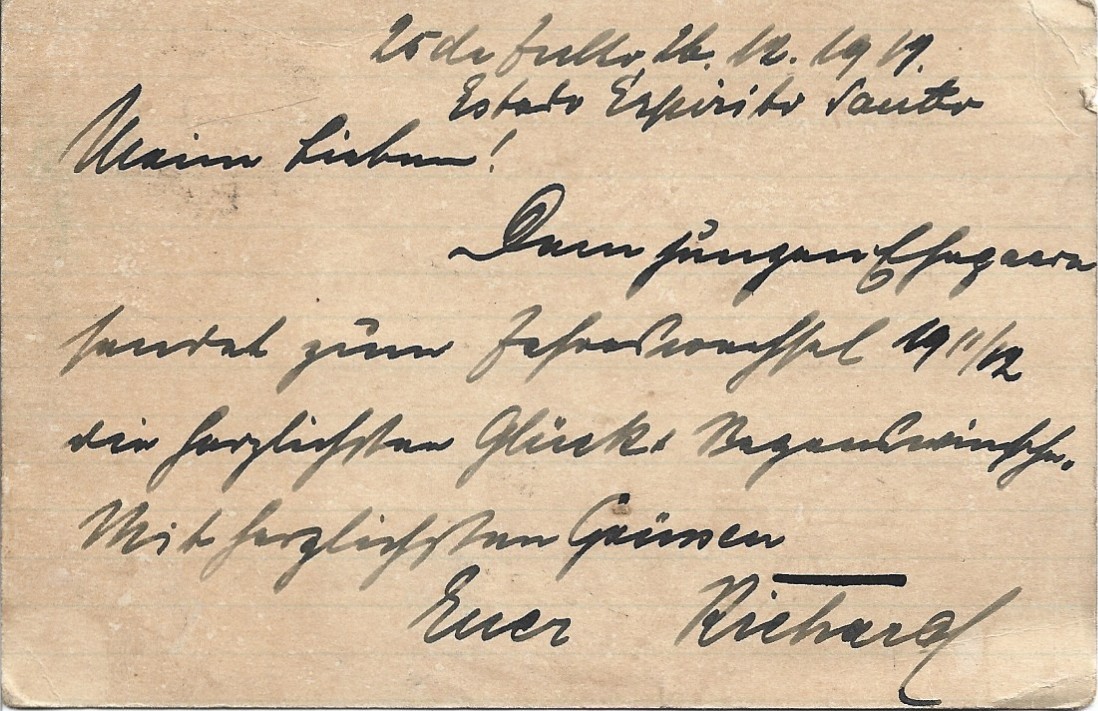 25 de Julho, 26. 12. 1911.
Estado Espirito Santo
Meine Lieben!
Dem jungen Ehepaare
sendet zum Jahreswechsel 1911/12
die herzlichsten Glück- Segenswünsche.
Mit herzlichsten Grüssen
Euer Richard